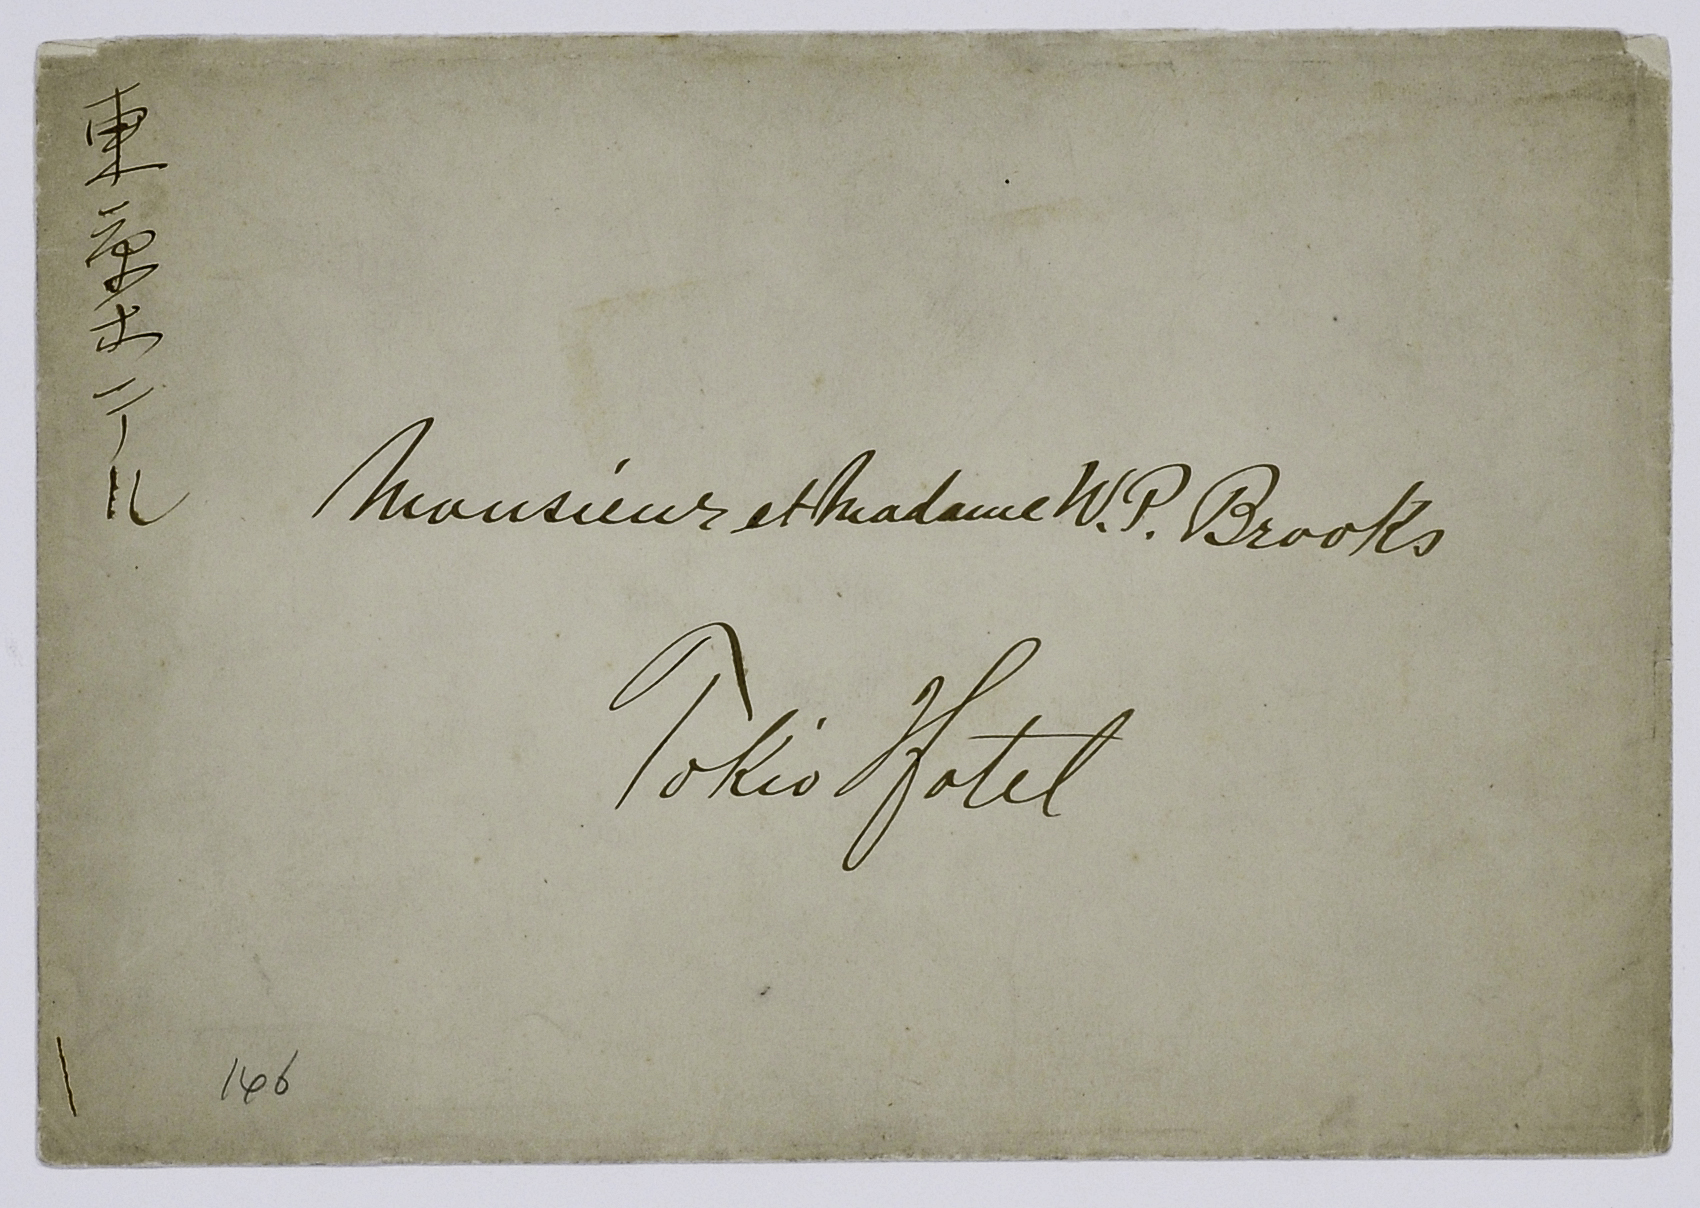 東京ホテル
Monsieur et Madame W.P. Brooks
Tokio Hotel
146